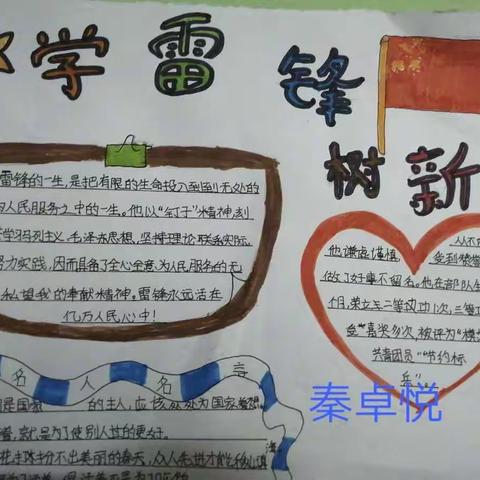 学雷锋
树新
雷锋的一生,是把有限的生命投入到到无处的
为人民服务之中的一生。他以“钉子”精神,刻
学习马列主义、毛泽东思想,坚持理论联系实际,
努力实践,因而具备了全心全意为人民服务的无
私望我的奉献精神。雷锋永远活在
亿万人民心中!
人不
他谦虚谨慎,受到赞誉
做了好事不留名。他在部队生
们,荣立二等攻功1次,三等功
受“嘉奖多次,被评为“模
共青团员”“节约标
兵”
名人名言
们是国家的主人,应该处处为国家着想。
着,就是为了使别人过的更好。
花丰珠扮不出美丽的春天,众人先进才能移山填
海。
秦卓悦